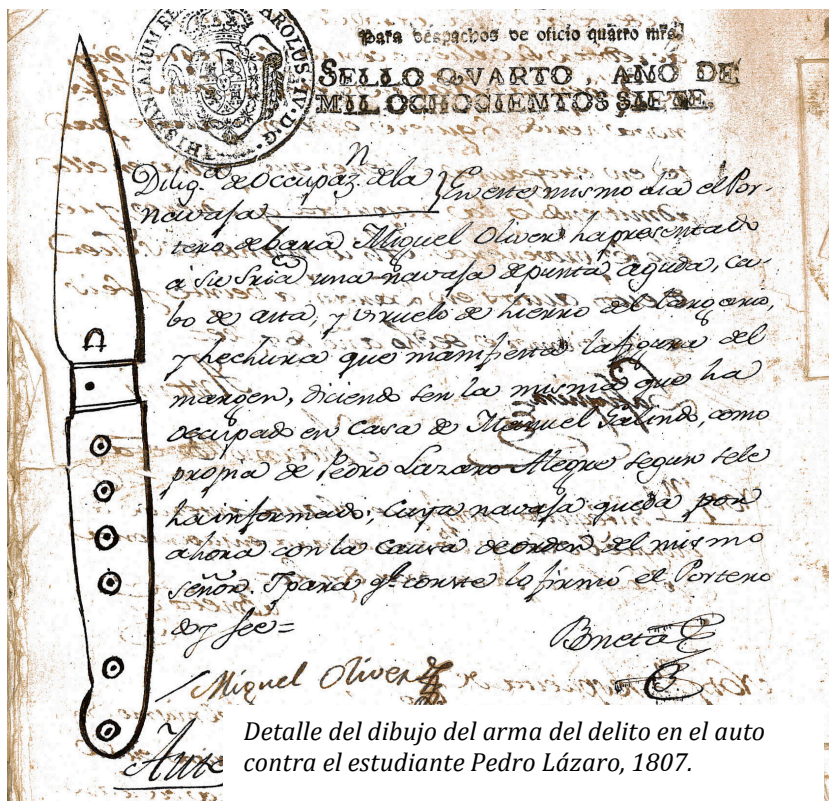 HISPANIARUM
CAROLUS IV D.G.
Para despachos de oficio quatro mrs.
SELLO QVARTO, AÑO DE
MIL OCHOCIENTOS SIETE.
Dilig.ª de Occupaz.n dela } En este mismo dia el Por-
navaja
tero debara Miguel Oliver hapresentado
á su Sria una navaja de punta aguda, ca-
bo de asta, y viruelo de hierro del largario,
y hechura que manifiesta lafigura del
margen, diciendo ser la misma que ha
occupado en Casa de Manuel Galindo, como
propia de Pedro Lazaro Alegre segun sele
hainformado; Cuya navaja queda por
ahora con la Causa deorden del mismo
señor. Y para qe. conste lo firmó el Portero
doy feé =
Miguel Oliver
Detalle del dibujo del arma del delito en el auto
contra el estudiante Pedro Lázaro, 1807.